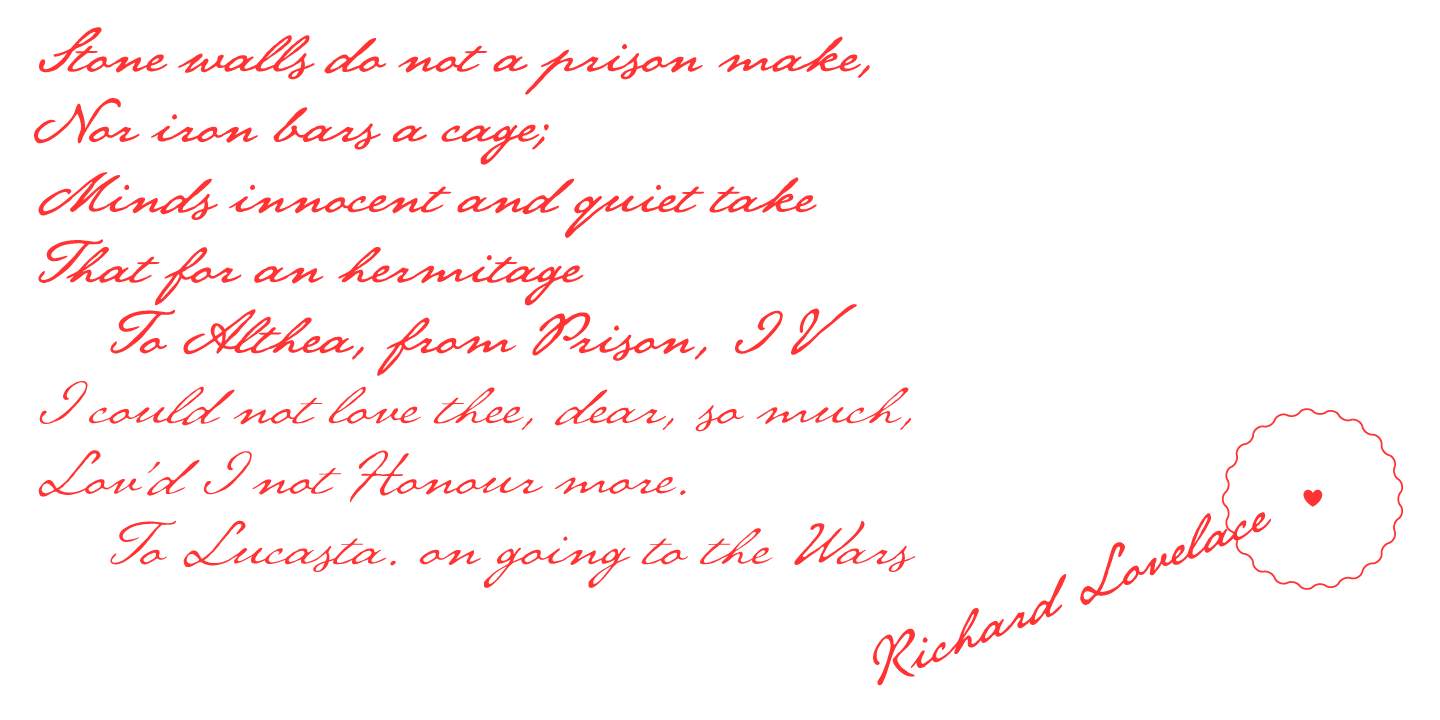 Stone walls do not a prison make,
Nor iron bars a cage;
Minds innocent and quiet take
That for an hermitage
To Althea, from Prison, IV
I could not love thee, dear, so much,
Lov'd I not Honour more.
To Lucasta. on going to the Wars
Richard Lovelace